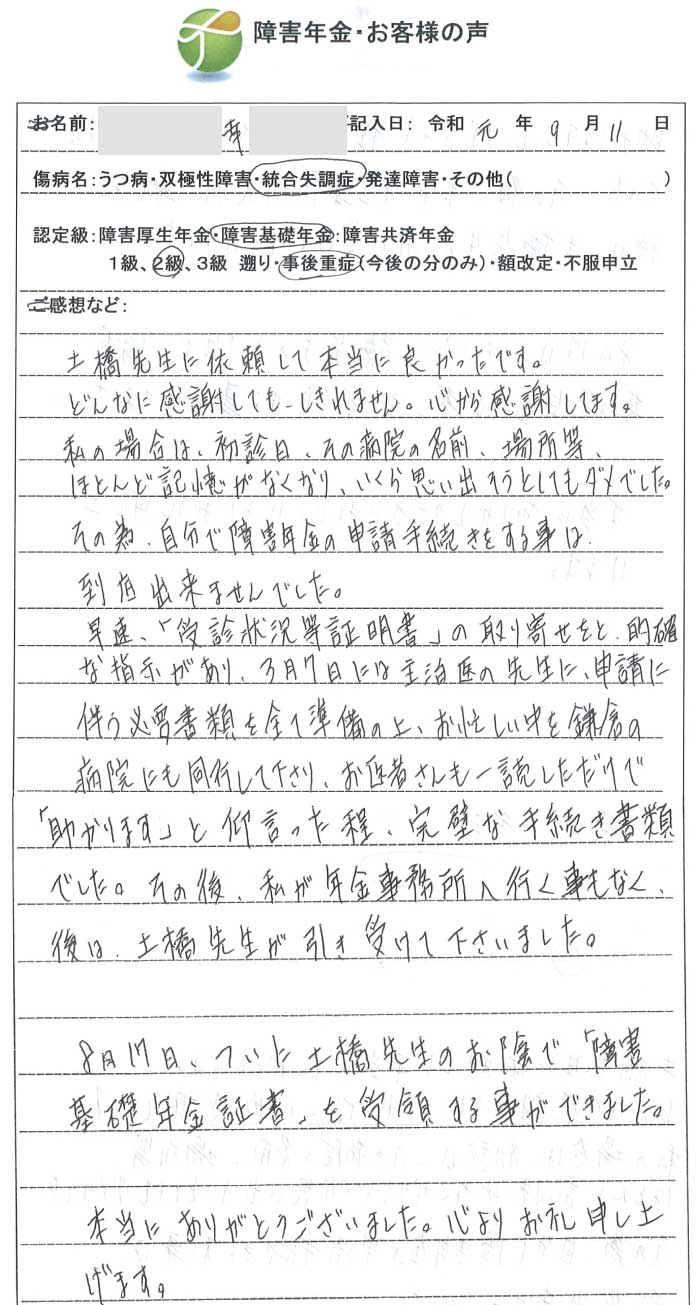 障害年金・お客様の声
お名前: 幸 記入日: 令和 元 年 9 月 11 日
傷病名:うつ病・双極性障害・統合失調症・発達障害・その他( )
認定級:障害厚生年金・障害基礎年金:障害共済年金
1級、2級、3級 遡り・事後重症(今後の分のみ)・額改定・不服申立
ご感想など:
土橋先生に依頼して本当に良かったです。
どんなに感謝してもしきれません。心から感謝してます。
私の場合は、初診日、その病院の名前、場所等、
ほとんど記憶がなくなり、いくら思い出そうとしてもダメでした。
その為、自分で障害年金の申請手続きをする事は、
到底出来ませんでした。
早速、「受診状況等証明書」の取り寄せをと、的確
な指示があり、3月7日には主治医の先生に、申請に
伴う必要書類を全て準備の上、お忙しい中を鎌倉の
病院にも同行して下さり、お医者さんも一読しただけで
「助かります」と仰言った程、完璧な手続き書類
でした。その後、私が年金事務所へ行く事もなく、
後は、土橋先生が引き受けて下さいました。
8月17日、ついに土橋先生のお陰で「障害
基礎年金証書」を受領する事ができました。
本当にありがとうございました。心よりお礼申し上
げます。